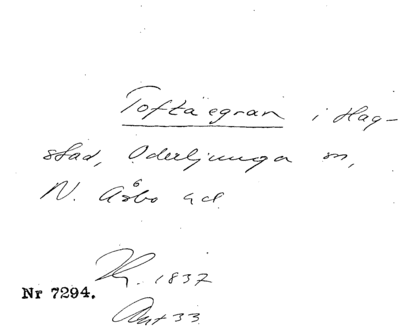 Toftaegran i Hag-
stad, Oderljunga sn,
N. Åsbo hd
1837
Nr 7294.
Akt 33